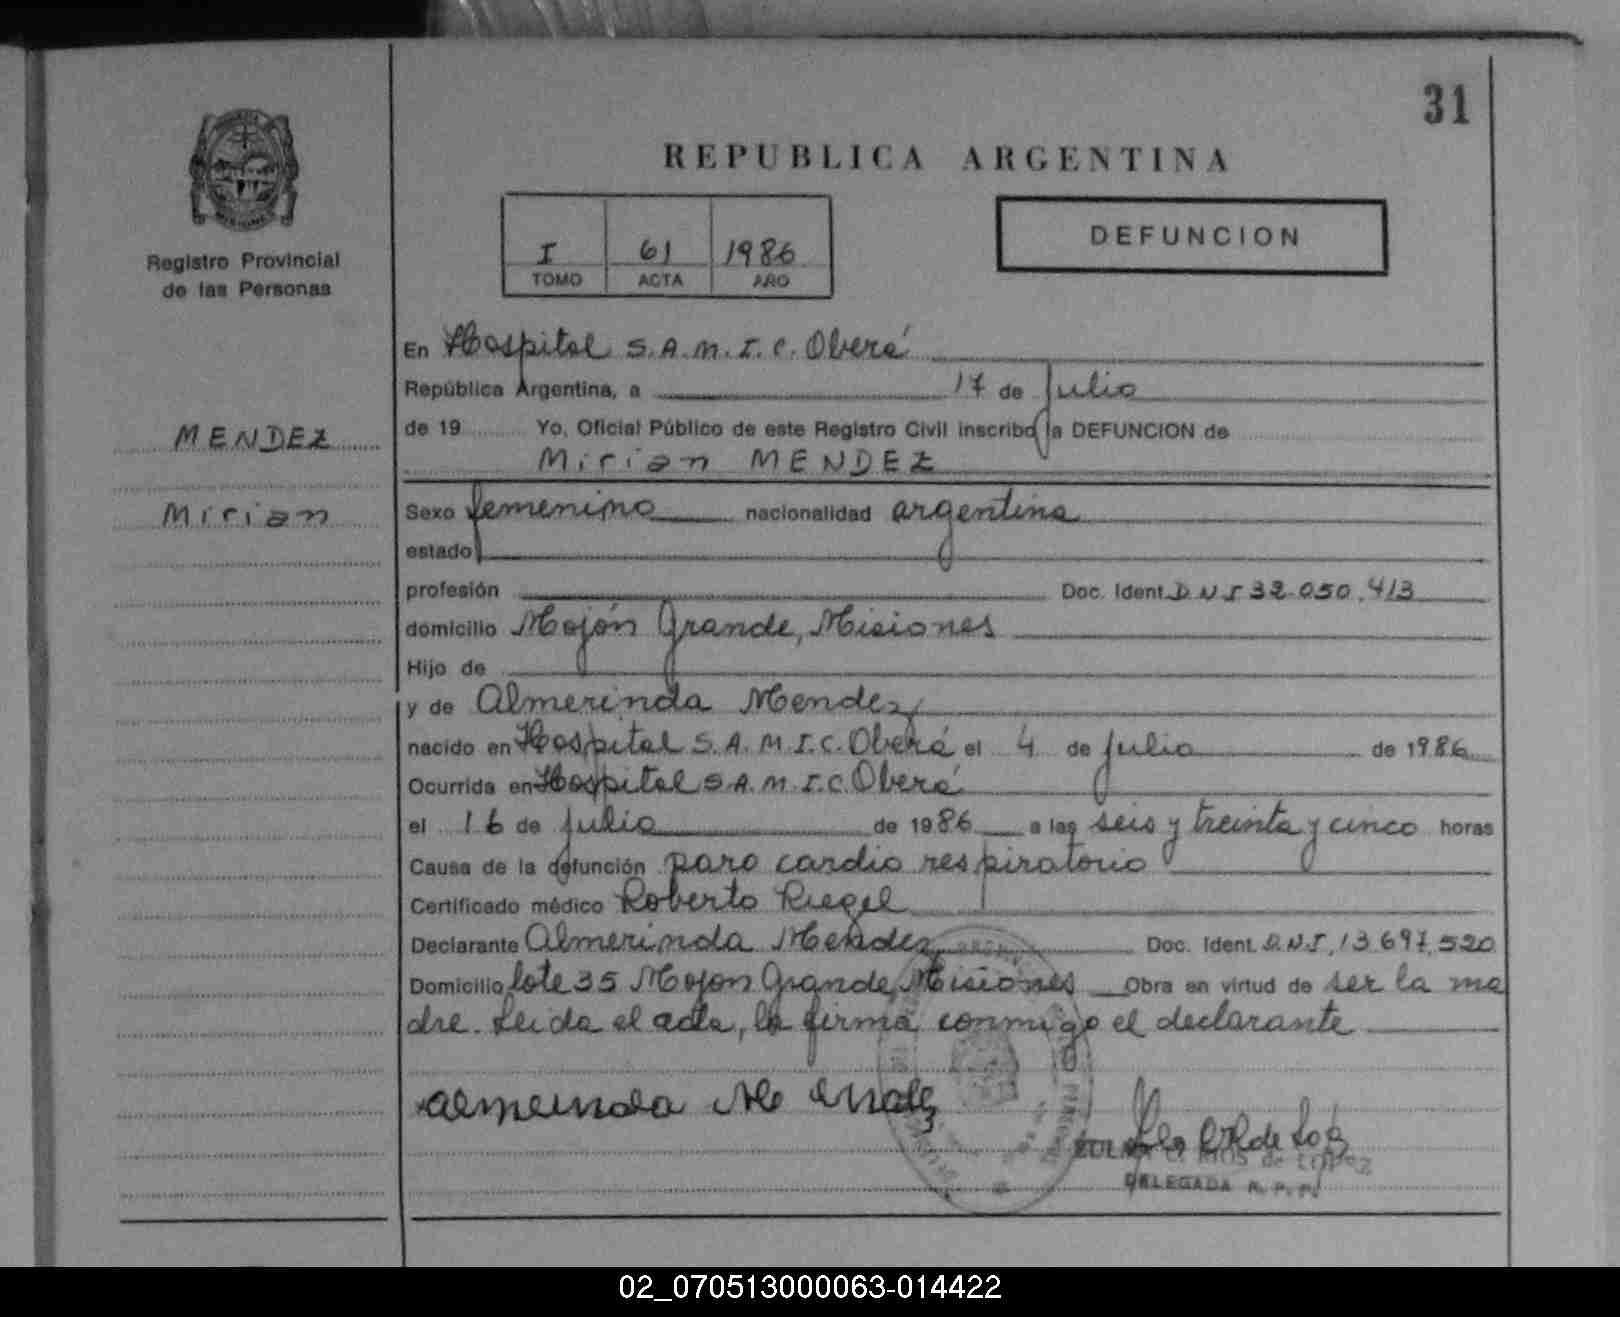 31
REPUBLICA ARGENTINA
I 61 1986
TOMO ACTA AÑO
DEFUNCION
Registro Provincial
de las Personas
MENDEZ
Mirian
En Hospital S.A.M.I.C. Oberá
República Argentina, a 17 de julio
de 19 Yo, Oficial Público de este Registro Civil inscribo la DEFUNCION de
Mirian MENDEZ
Sexo femenino nacionalidad argentina
estado
profesión Doc. Ident. D N I 32.050.413
domicilio Mojón Grande, Misiones
Hijo de
y de Almerinda Mendez
nacido en Hospital S.A.M.I.C. Oberá el 4 de julio de 1986
Ocurrida en Hospital S.A.M.I.C. Oberá
el 16 de julio de 1986 a las seis y treinta y cinco horas
Causa de la defunción paro cardio respiratorio
Certificado médico Roberto Riegel
Declarante Almerinda Mendez Doc. Ident. D.N.I. 13.697.520
Domicilio lote 35 Mojon Grande, Misiones Obra en virtud de ser la ma
dre. Leida el acta, la firma conmigo el declarante
Almerinda Mendez
RIOS de LOPEZ
DELEGADA R. P. P.
02_070513000063-014422